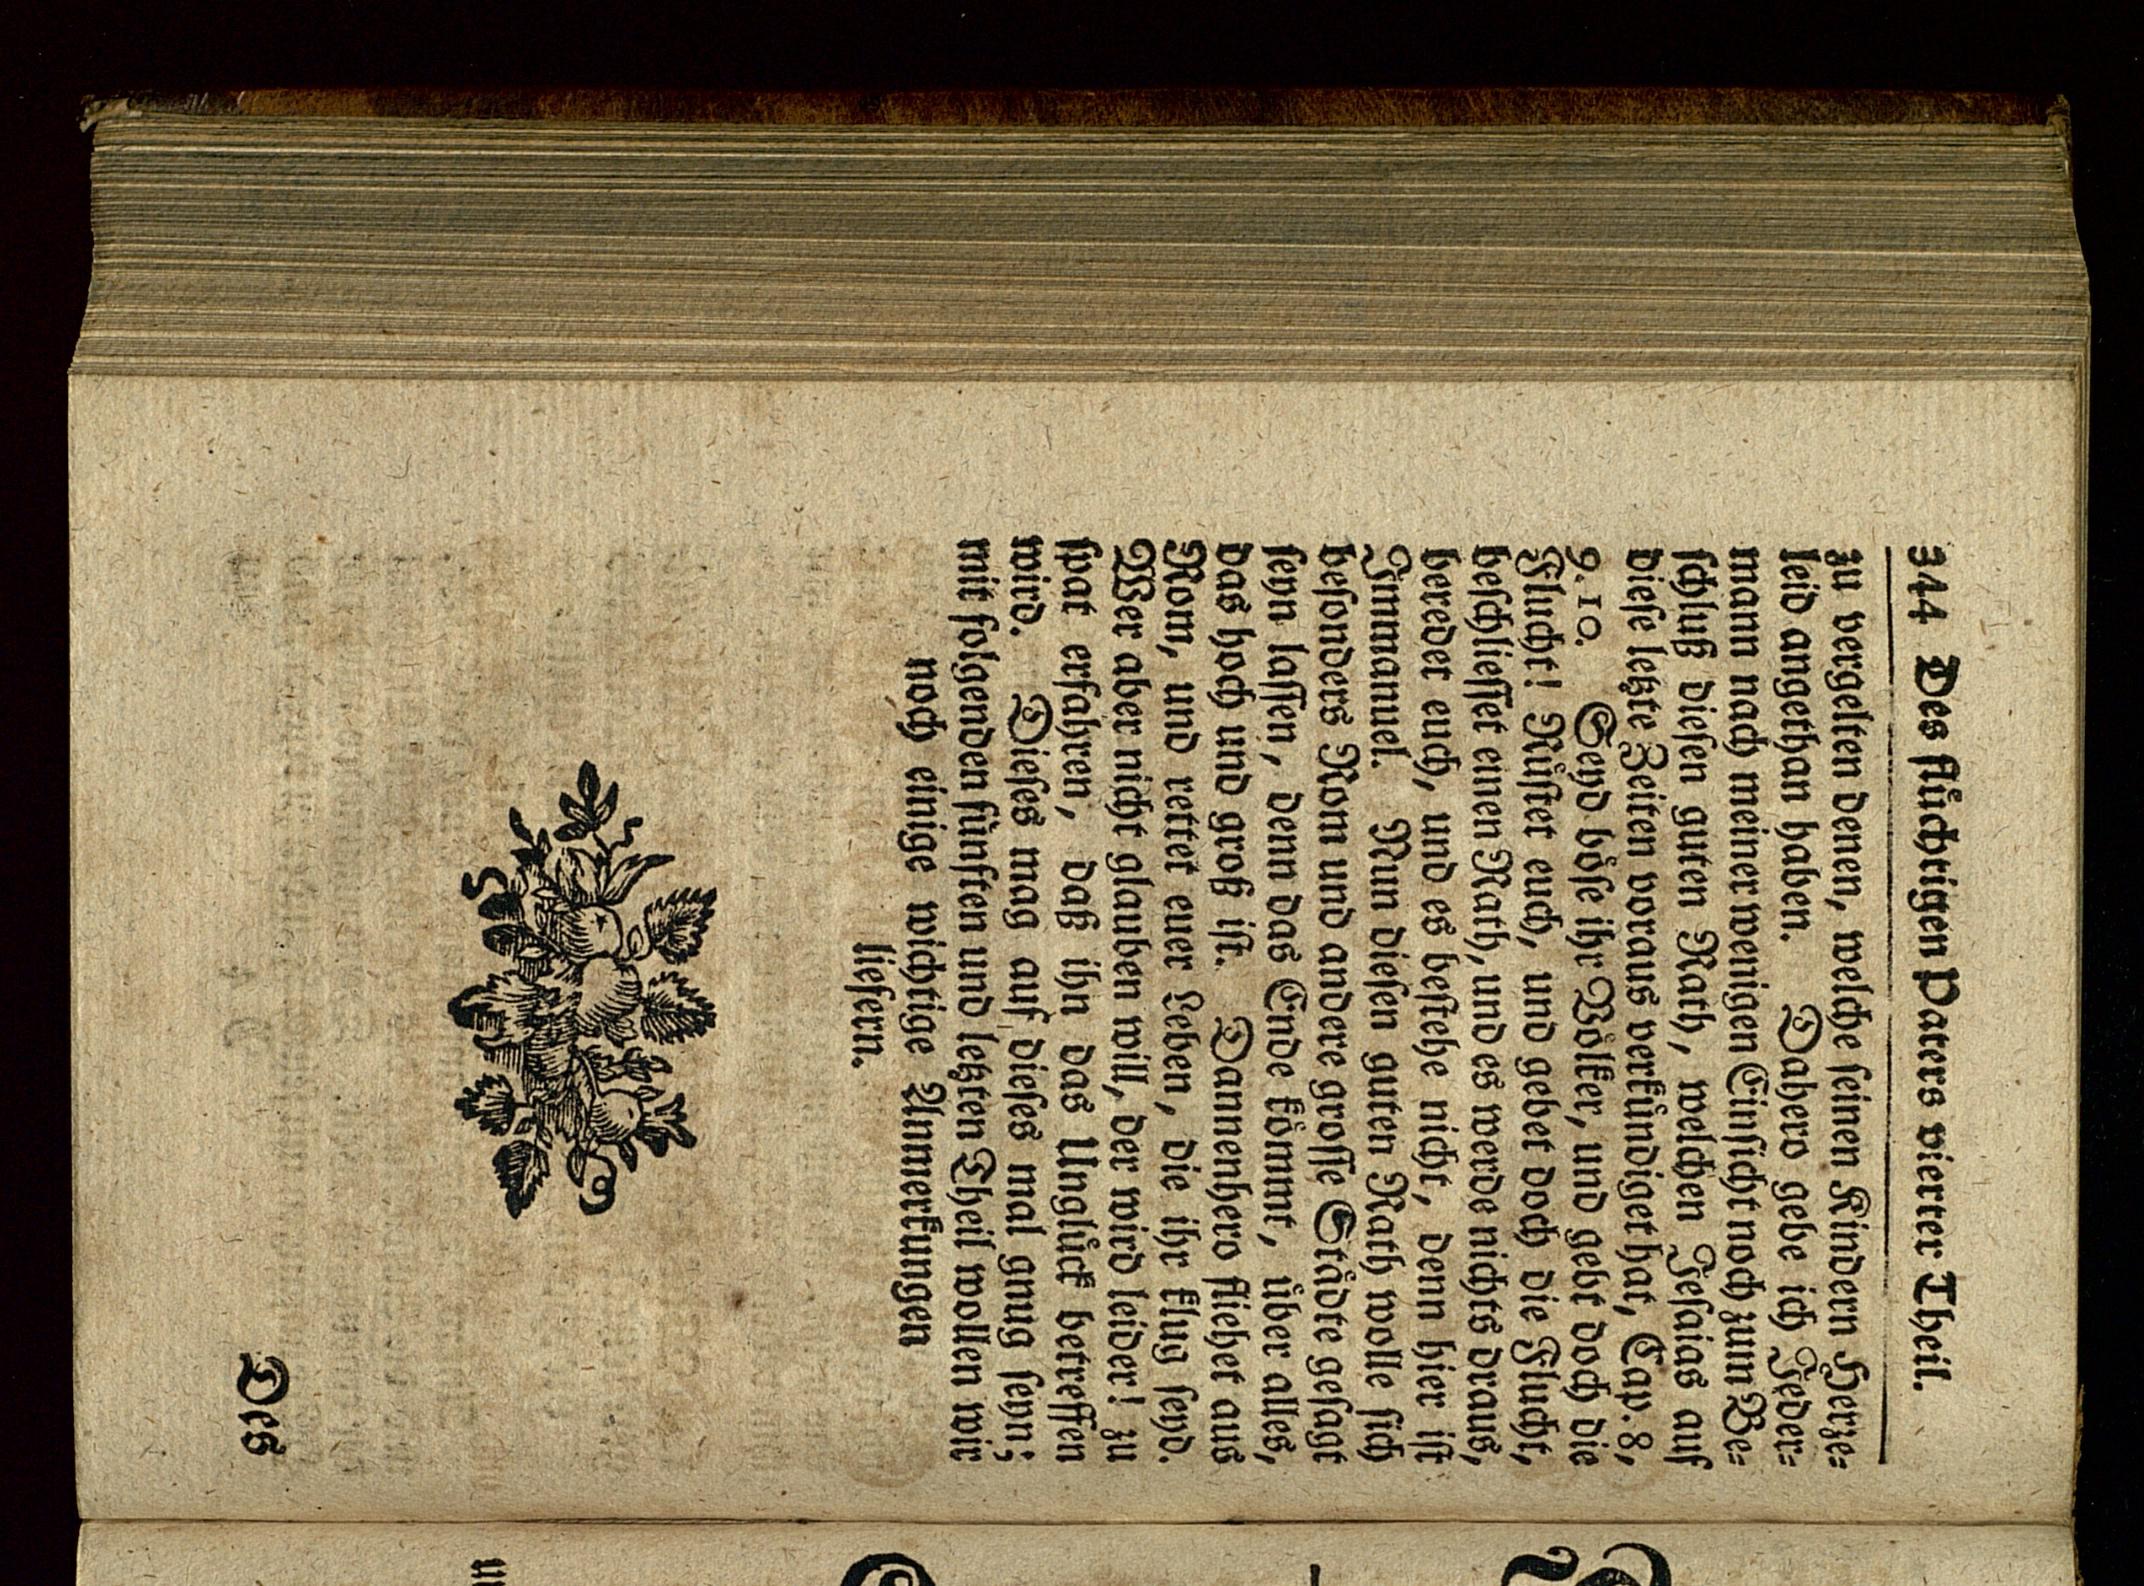 344 Des flüchtigen Paters vierter Theil.
zu vergelten denen, welche seinen Kindern Hertze=
leid angethan haben. Dahero gebe ich Jeder=
mann nach meiner wenigen Einsicht noch zum Be=
schluß diesen guten Rath, welchen Jesaias auf
diese letzte Zeiten voraus verkündiget hat, Cap. 8,
9. 10. Seyd böse ihr Völker, und gebt doch die
Flucht! Rüstet euch, und gebet doch die Flucht,
beschliesset einen Rath, und es werde nichts draus,
beredet euch, und es bestehe nicht, denn hier ist
Immanuel. Nun diesen guten Rath wolle sich
besonders Rom und andere grosse Städte gesagt
seyn lassen, denn das Ende kömmt, über alles,
das hoch und groß ist. Dannenhero fliehet aus
Rom, und rettet euer Leben, die ihr klug seyd.
Wer aber nicht glauben will, der wird leider! zu
spat erfahren, daß ihn das Unglück betreffen
wird. Dieses mag auf dieses mal gnug seyn;
mit folgenden fünften und letzten Theil wollen wir
noch einige wichtige Anmerkungen
liefern.
Des